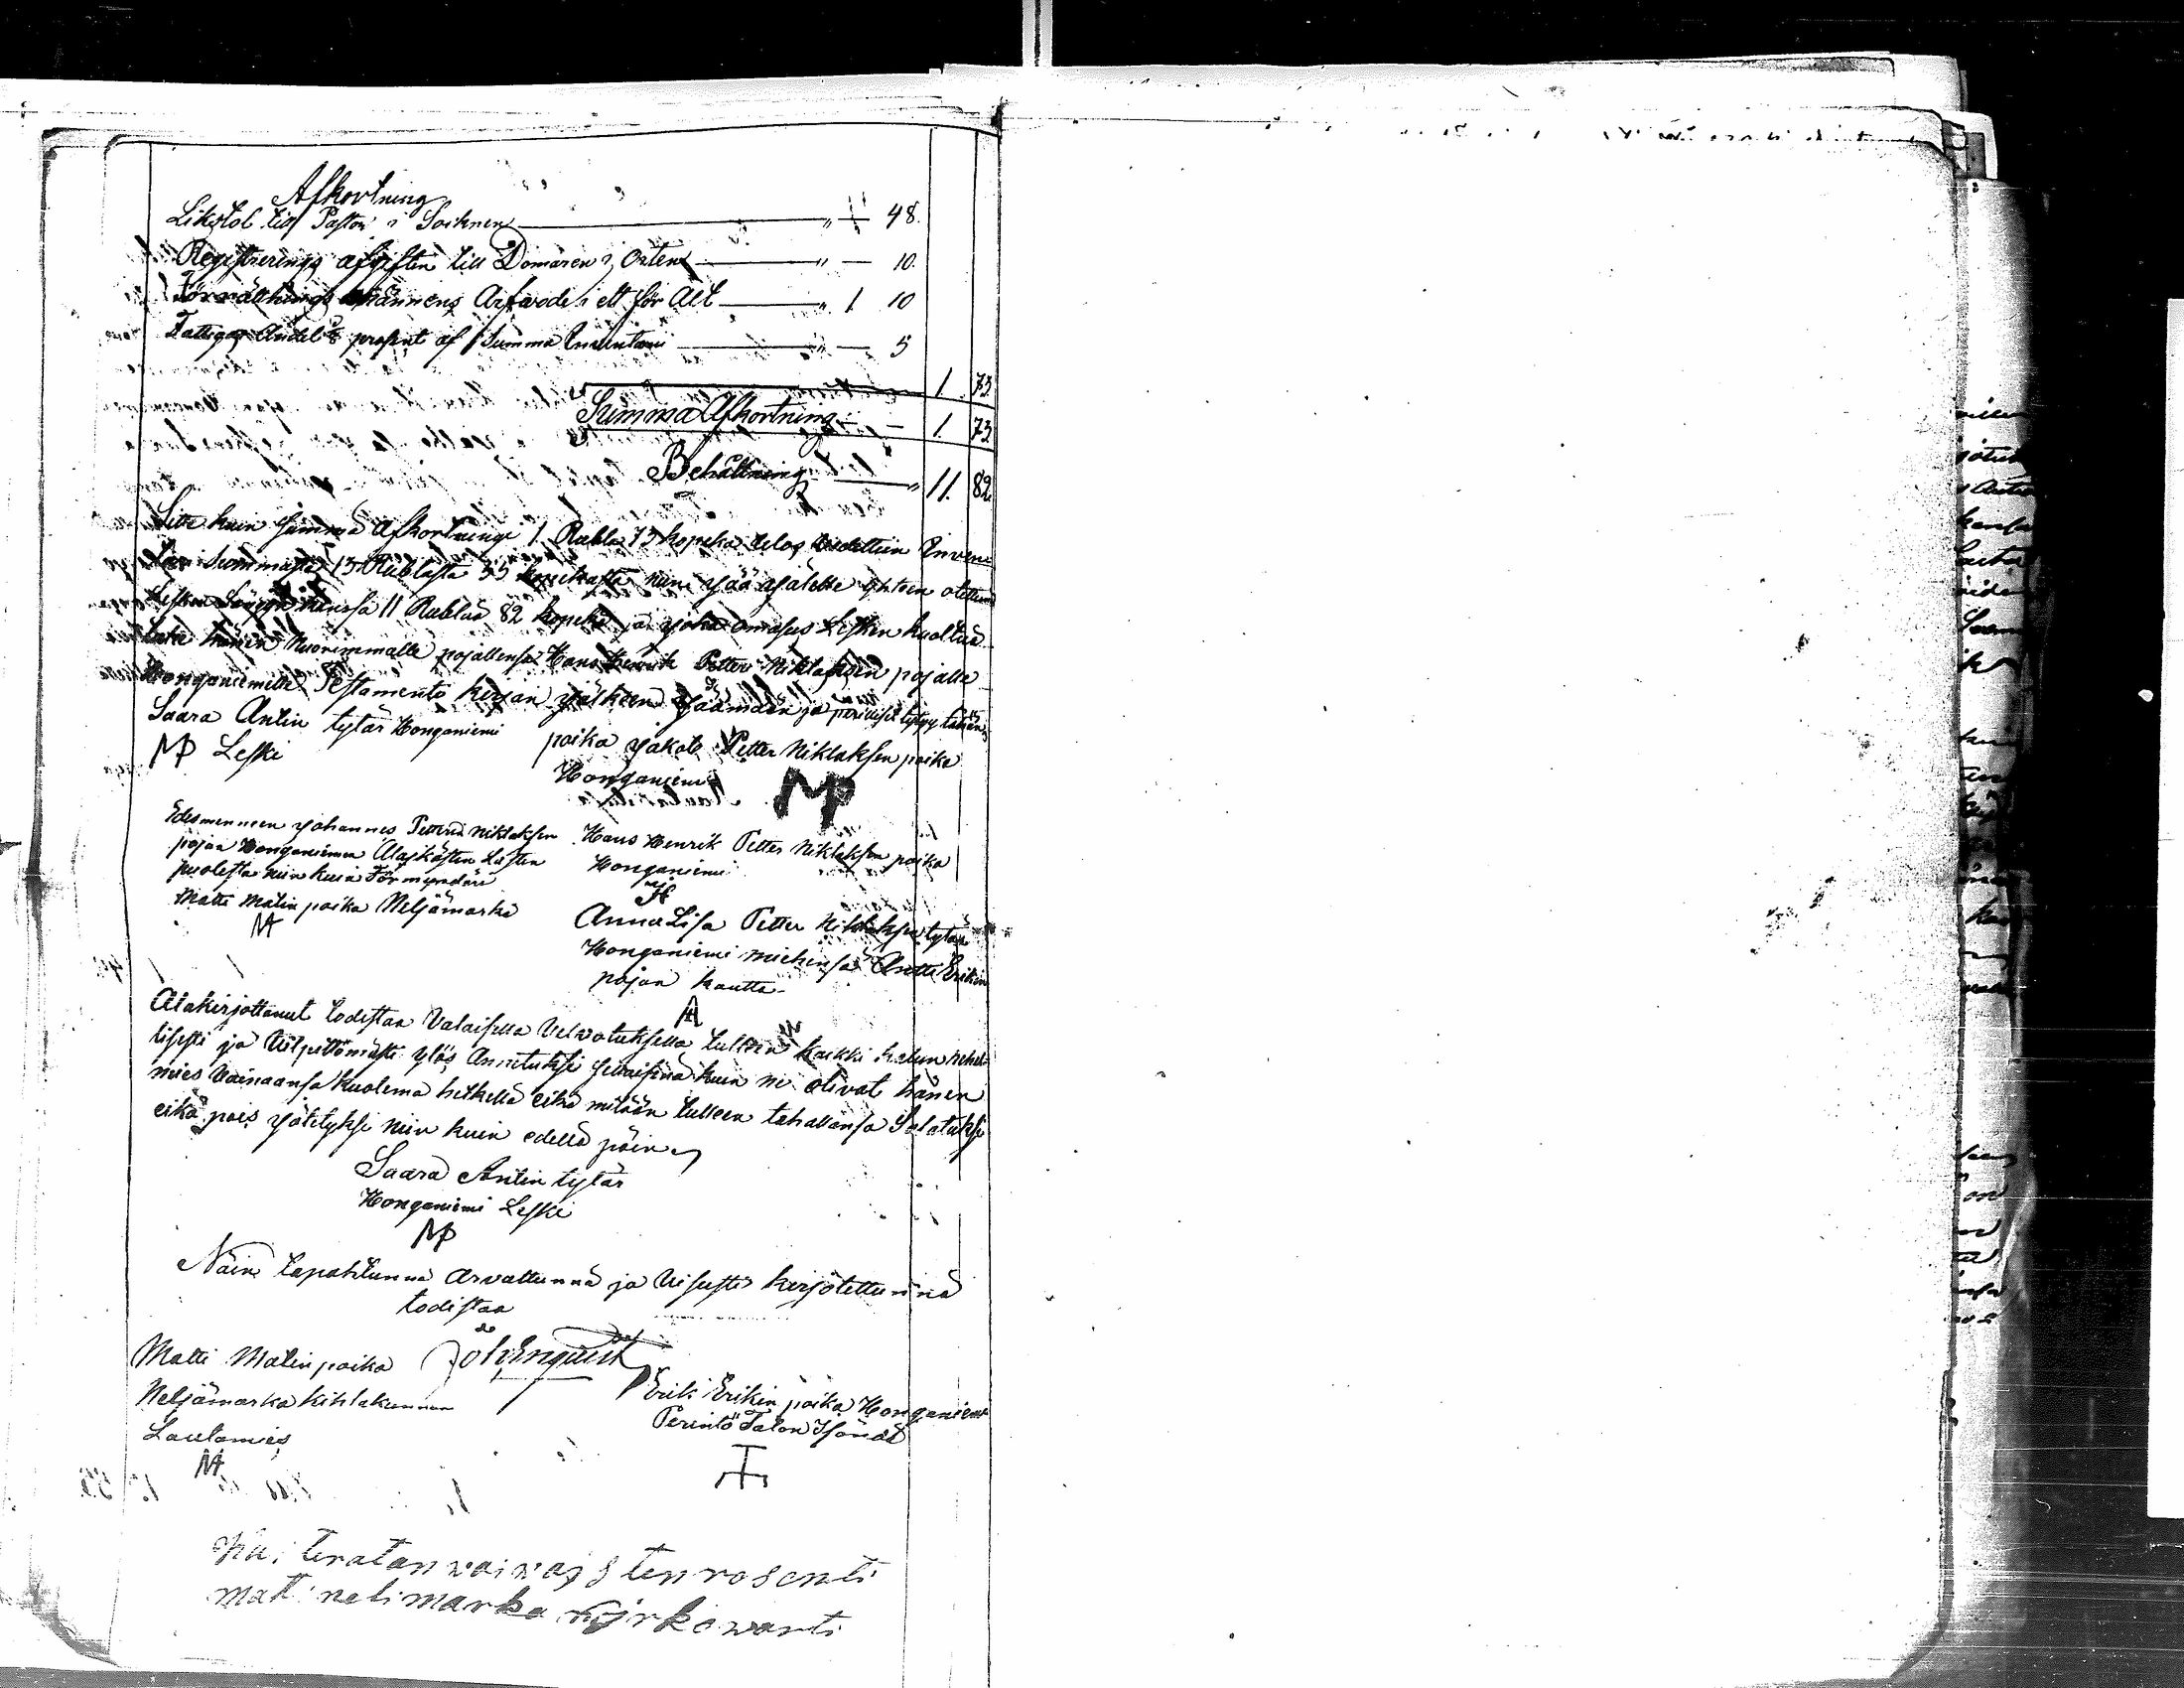 Afkortning
Likstol till Pastor i Socknen — " — 48.
Registrerings afgiften till Domaren i Orten — " — 10.
Förrättnings Männens Arfwode i ett för Alt — " 1 10
Fattigas Andel 1/8 prosent af Summa Inventarii — " — 5
1. 73.
Summa Afkortning — 1. 73.
Behållning — " 11. 82.
Sitte kuin Summa Afkortningi 1 Rubla 73 kopeka ulos vedettiin Inven
tari Summasta 13 Rublasta 55 kopekasta niin jää jälelle yhteen otettuna
Lesken kanssa 11 Rublaa 82 kopeka ja joka omasus Lesken kuoltua
tule hänen Nuorimmalle pojallensa Hans Henrik Petter Niklaksen pojalle
Honganiemelle Testamentti kirjan jälkeen jäämään ja perilliset tytyy tähän
Saara Antin tytär Honganiemi
MP Leski
poika Jakob Petter Niklaksen poika
Honganiemi
MP
Edesmenneen Johannes Petterin Niklaksen
pojan Honganiemen Alaikäisten Lasten
puolesta niin kuin Förmyndäri
Matti Matin poika Neljämarka
M
Hans Henrik Petter Niklaksen poika
Honganiemi
H
Anna Lisa Petter Niklaksen tytär
Honganiemi miehensä Antti Erikin
pojan kautta
A
Alakirjottanut todistaa Valaisella Velvotuksella tulleen kaikki kalun rehel-
lisesti ja Vilpittömästi ylös Annetuksi sellaisina kuin ne olivat hänen
mies Vainaansa kuolema hetkellä eikä mitään tulleen tahallansa Salatuksi
eikä pois jätetyksi niin kuin edellä päin
Saara Antin tytär
Honganiemi Leski
MP
Näin tapahtunna arvattunna ja Visusti kirjotettunna
todistaa
Matti Matin poika
Neljämarka kihlakunnan
Lautamies
M
Joh. Enqvist
Erik Erikin poika Honganiemi
Perintö Talon Isändä
mat nelimarka